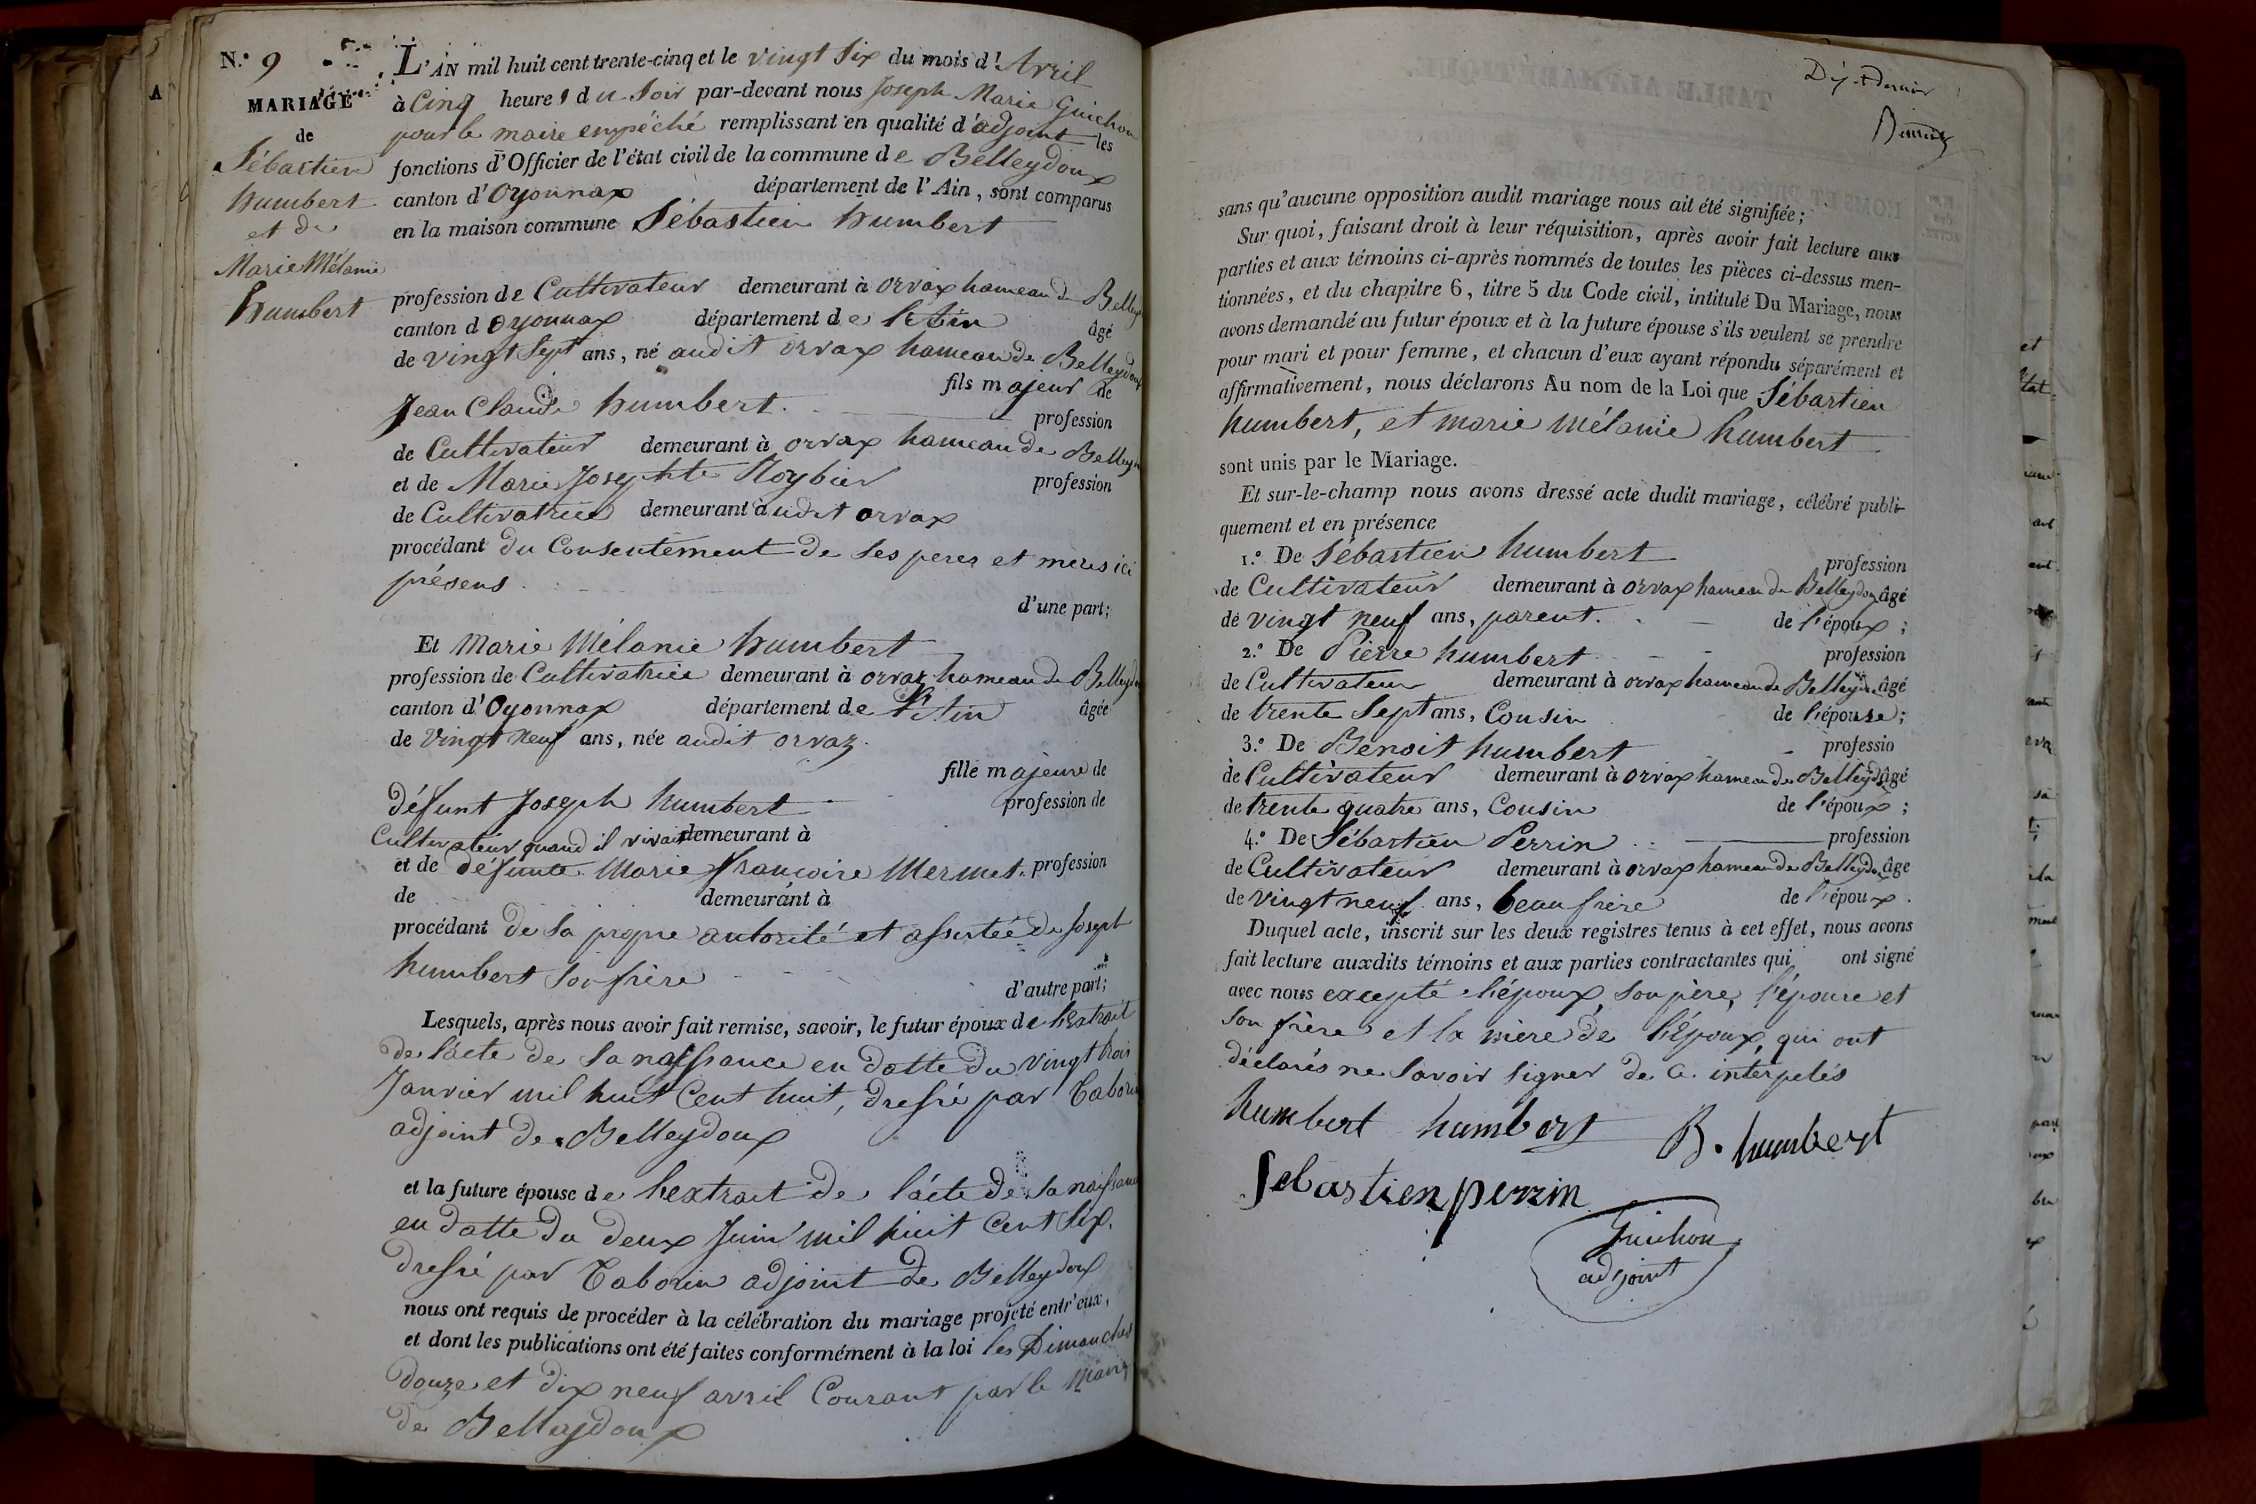 N.º 9
MARIAGE
de
Sébastien
humbert
et de
Marie Mélanie
humbert
L'AN mil huit cent trente-cinq et le vingt Six du mois d'Avril
à Cinq heures du Soir par-devant nous Joseph Marie Guichon
pour le maire empéché remplissant en qualité d'adjoint les
fonctions d'Officier de l'état civil de la commune de Belleydoux
canton d'Oyonnax département de l'Ain, sont comparus
en la maison commune Sébastien humbert
profession de Cultivateur demeurant à orvax hameau de Belley
canton d Oyonnax département de l'Ain âgé
de vingt Sept ans, né audit orvax hameau de Belleydoux
fils majeur de
Jean Claude humbert. profession
de Cultivateur demeurant à orvax hameau de Belley
et de Marie Josephte Noybier profession
de Cultivatrice demeurant audit orvax
procédant du Consentement de ses peres et meres ici
présens.
d'une part;
Et Marie Mélanie humbert
profession de Cultivatrice demeurant à orvaz hameau de Belleyd
canton d'Oyonnax département de l'Ain âgée
de vingt neuf ans, née audit orvaz.
fille majeure de
défunt Joseph humbert profession de
Cultivateur quand il vivait demeurant à
et de défunte Marie françoise Mermet. profession
de demeurant à
procédant de sa propre autorité et assistée de Joseph
humbert son frère
d'autre part;
Lesquels, après nous avoir fait remise, savoir, le futur époux de l'extrait
de l'acte de sa naissance en datte du vingt trois
Janvier mil huit Cent huit, dressé par Taborin
adjoint de Belleydoux
et la future épouse de l'extrait de l'acte de sa naissance
en datte du deux Juin mil huit Cent Six.
dressé par Taborin adjoint de Belleydoux
nous ont requis de procéder à la célébration du mariage projeté entr'eux,
et dont les publications ont été faites conformément à la loi les Dimanches
douze et dix neuf avril Courant par le maire
de Belleydoux
sans qu'aucune opposition audit mariage nous ait été signifiée;
Sur quoi, faisant droit à leur réquisition, après avoir fait lecture aux
parties et aux témoins ci-après nommés de toutes les pièces ci-dessus men-
tionnées, et du chapitre 6, titre 5 du Code civil, intitulé Du Mariage, nous
avons demandé au futur époux et à la future épouse s'ils veulent se prendre
pour mari et pour femme, et chacun d'eux ayant répondu séparément et
affirmativement, nous déclarons Au nom de la Loi que Sébastien
humbert, et marie mélanie humbert
sont unis par le Mariage.
Et sur-le-champ nous avons dressé acte dudit mariage, célébré publi-
quement et en présence
1.º De Sébastien humbert profession
de Cultivateur demeurant à orvax hameau de Belleydoux âgé
de vingt neuf ans, parent. de l'époux;
2.º De Pierre humbert profession
de Cultivateur demeurant à orvax hameau de Belleydoux âgé
de trente Sept ans, Cousin de l'épouse;
3.º De Benoit humbert professio
de Cultivateur demeurant à orvax hameau de Belleydoux âgé
de trente quatre ans, Cousin de l'époux;
4.º De Sébastien Perrin profession
de Cultivateur demeurant à orvax hameau de Belleydoux âgé
de vingt neuf ans, beau frère de l'époux.
Duquel acte, inscrit sur les deux registres tenus à cet effet, nous avons
fait lecture auxdits témoins et aux parties contractantes qui ont signé
avec nous excepté l'époux, son père, l'épouse et
son frère et la mère de l'époux, qui ont
déclarés ne savoir signer de ce intérpelés
humbert humbert B. humbert
Sebastien perrin
Guichon
adjoint